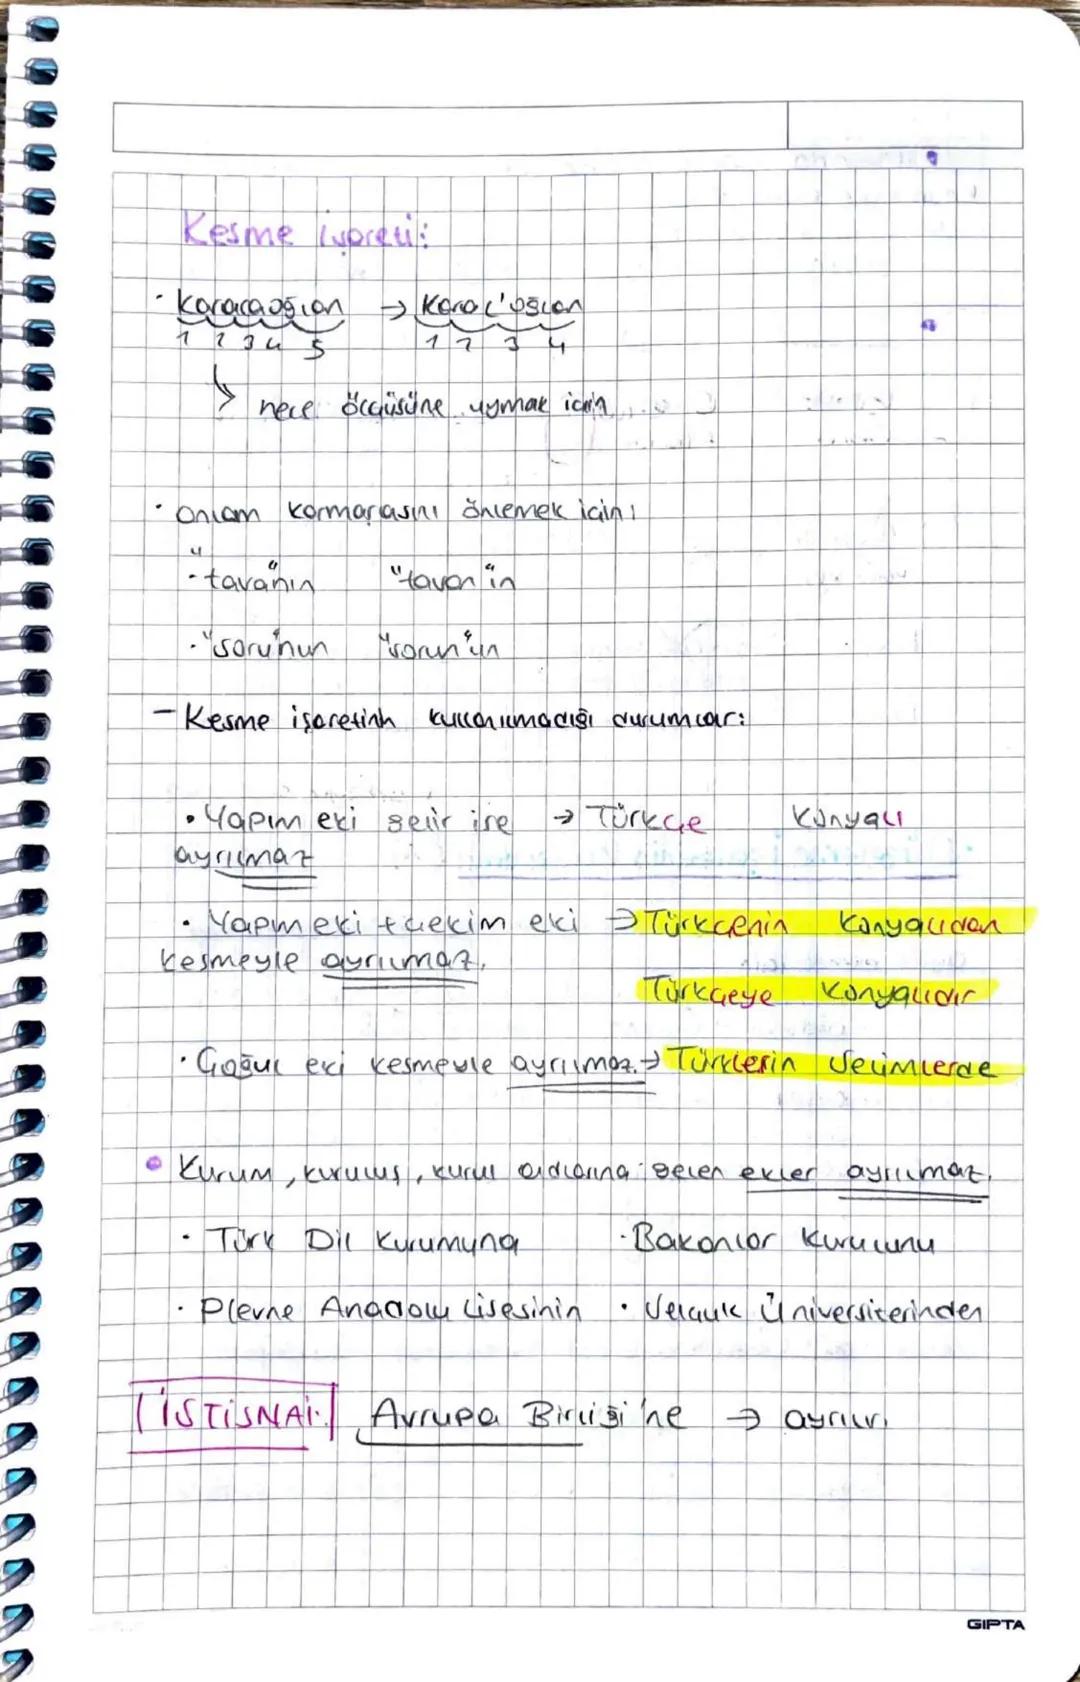 Kesme işareti:
· Karacaoğlan → Karac'oğlan
1 2 3 4 5 1 2 3 4
hece ölçüsüne uymak için
· Anlam karmaşasını önlemek için:
· "tava"nın "tavan"ın
· "soru"nun "sorun"un
- Kesme işaretinin kullanılmadığı durumlar:
· Yapım eki gelir ise → Türkçe Konyalı
ayrılmaz
· Yapım eki + çekim eki → Türkçenin Konyalıdan
kesmeyle ayrılmaz.
Türkçeye Konyalıdır
· Çoğul eki kesmeyle ayrılmaz. → Türklerin Selimlerde
• Kurum, kuruluş, kurul adlarına gelen ekler ayrılmaz.
· Türk Dil Kurumuna · Bakanlar Kurulunu
· Plevne Anadolu Lisesinin · Selçuk Üniversitesinden
İSTİSNA!: Avrupa Birliği'ne → ayrılır.
GIPTA